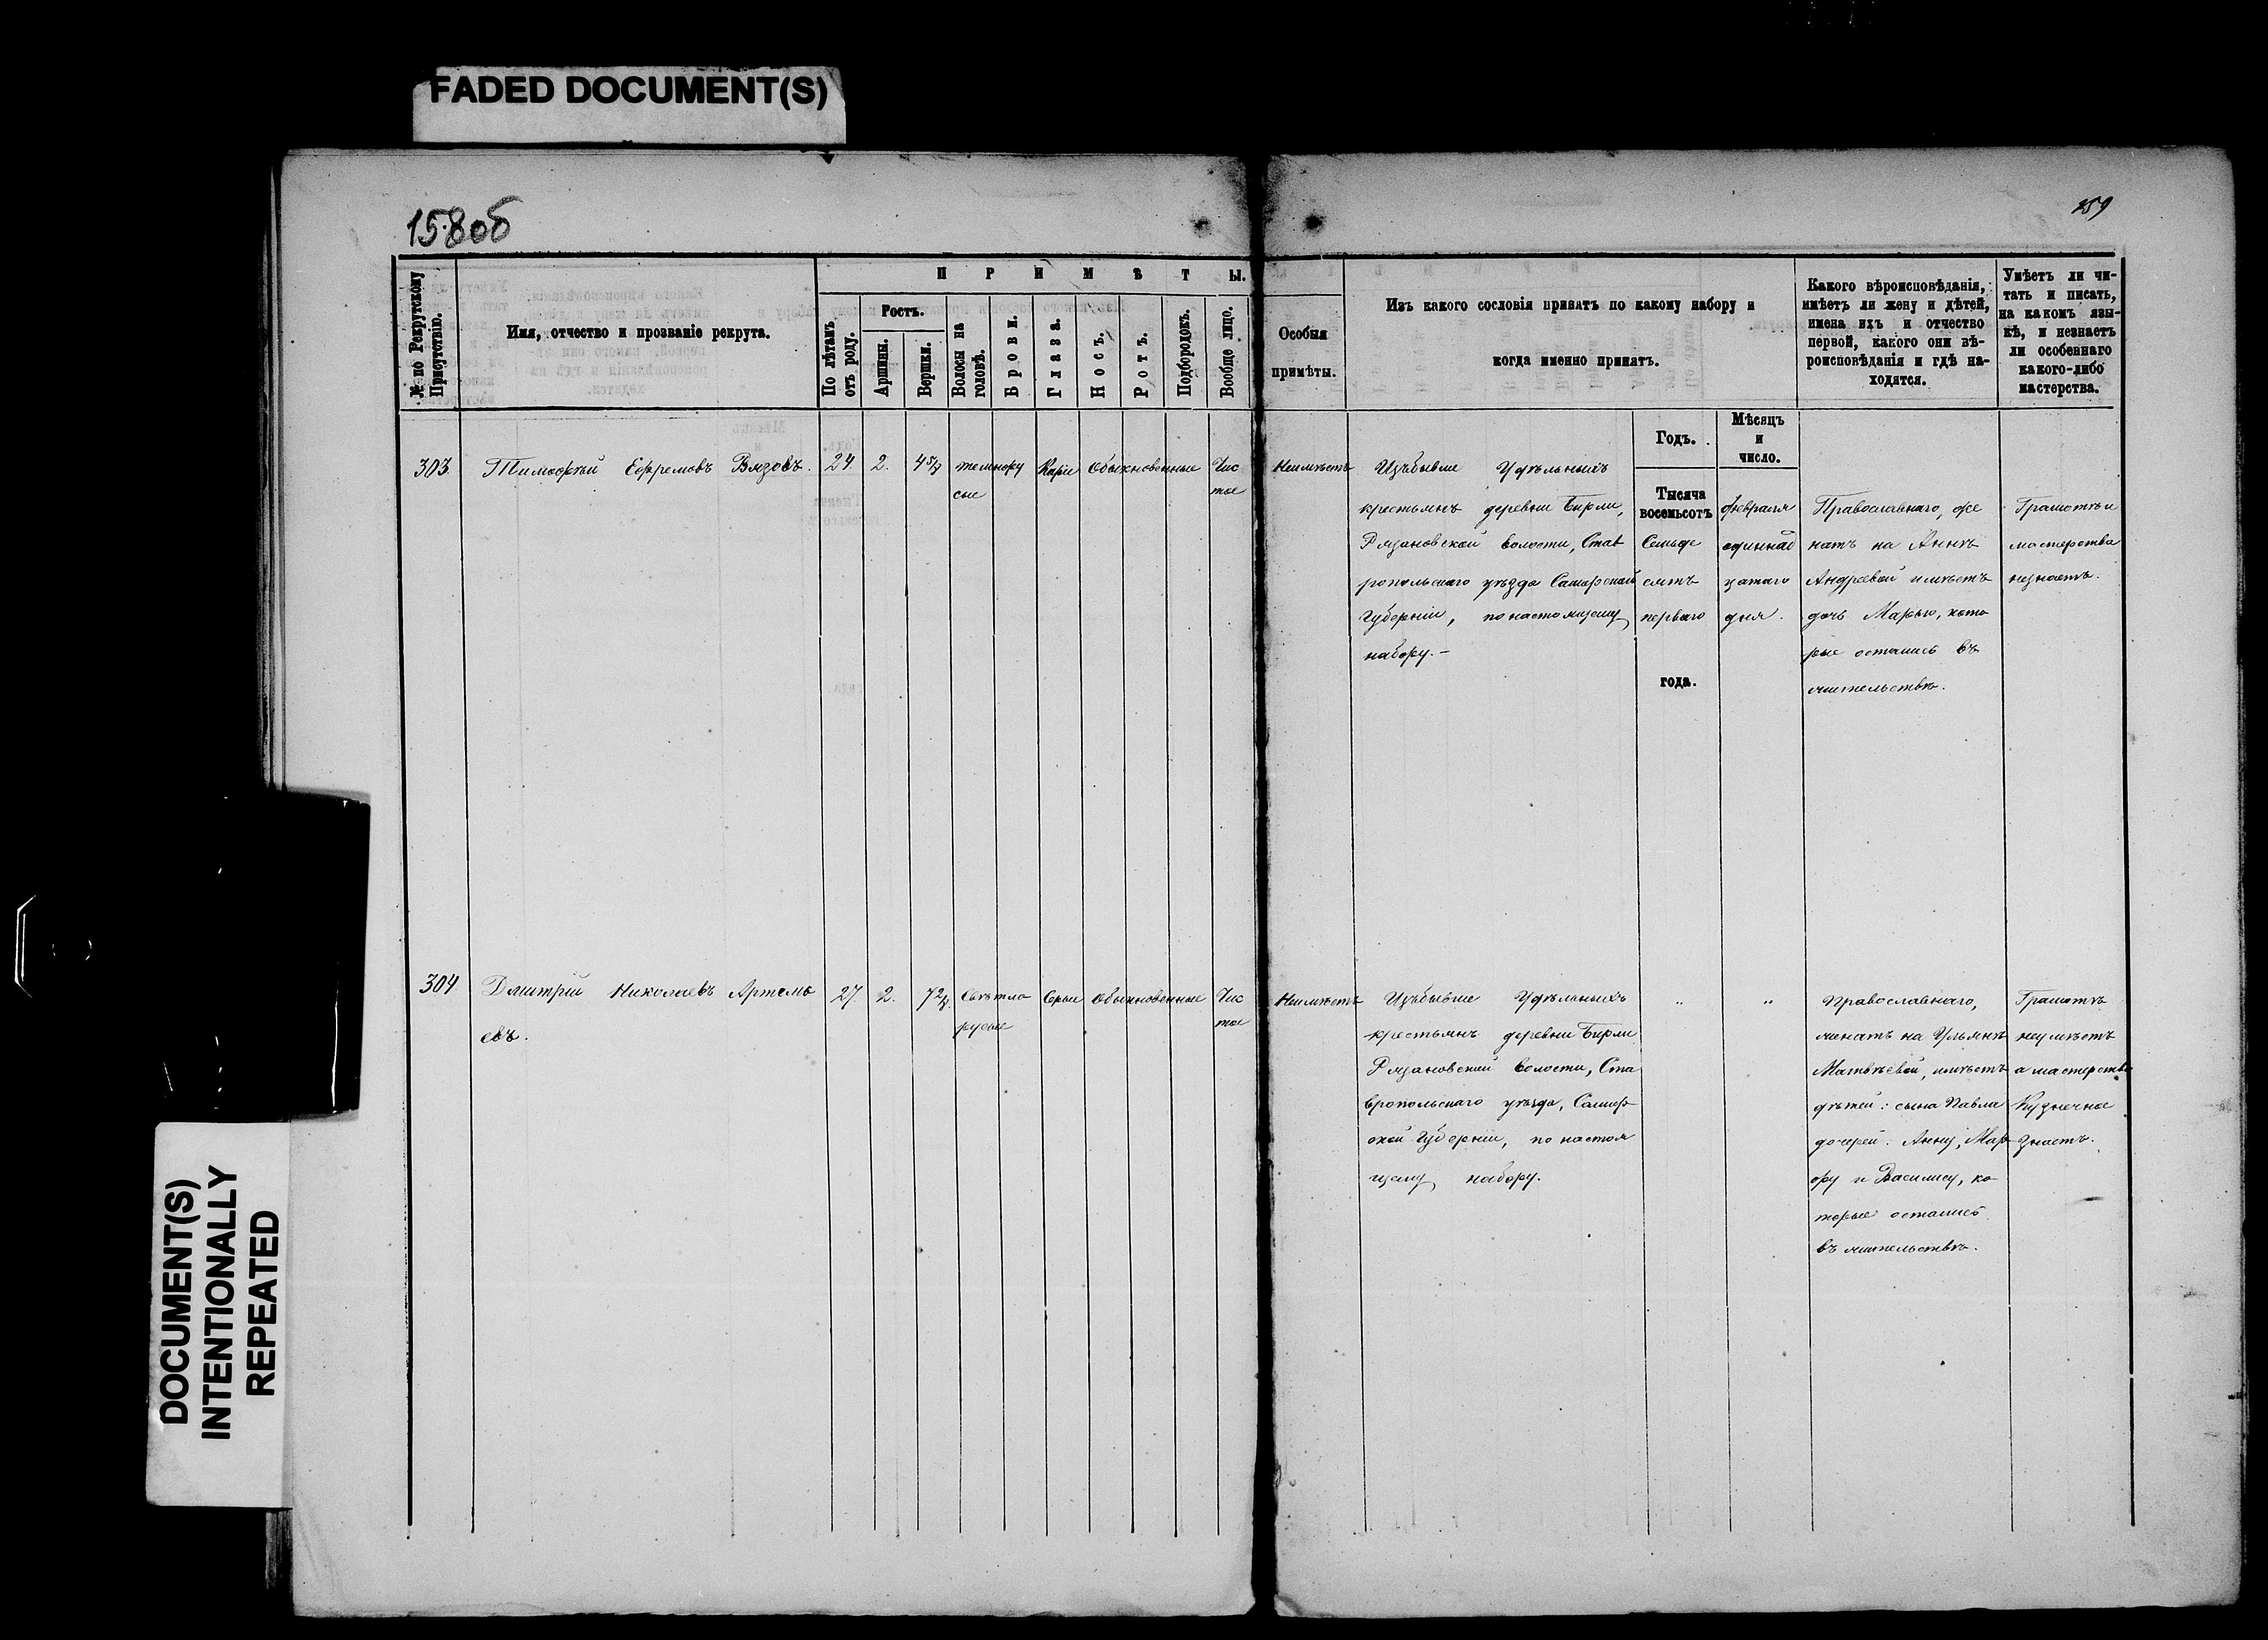 FADED DOCUMENT(S)
158об
159
№ по Рекрутскому Присутствію.
Имя, отчество и прозваніе рекрута.
ПРИМѢТЫ.
По лѣтамъ отъ роду.
Ростъ.
Аршины.
Вершки.
Волосы на головѣ.
Брови.
Глаза.
Носъ.
Ротъ.
Подбородокъ.
Вообще лицо.
Особыя
примѣты.
Изъ какого сословія принатъ по какому набору и
когда именно принатъ.
Какого вѣроисповѣданія,
имѣетъ ли жену и дѣтей,
имена ихъ и отчество
первой, какого они вѣ-
роисповѣданія и гдѣ на-
ходятся.
Умѣетъ ли чи-
тать и писать,
на какомъ язы-
кѣ, и незнаетъ
ли особеннаго
какого-либо
мастерства.
Годъ.
Мѣсяцъ
и
число.
303 Тимофѣй Ефремовъ Вязовъ. 24. 2. 4 5/8 темнору Каріе Обыкновенные Чис
сые тое
Неимѣетъ
Изъбывше Удѣльныхъ
крестьянъ деревни Бирли,
Рязановской волости, Став
ропольскаго уѣзда Самарской
Губерніи, по настоящему
набору. -
Тысяча
восемьсотъ
Семьде
сятъ
перваго
года.
февраля
одиннад
цатаго
дня.
Православнаго, же
натъ на Аннѣ
Андреевой имѣетъ
дочь Марью, кото
рые остались въ
жительствѣ.
Грамотѣ и
мастерства
незнаетъ.
304 Дмитрій Николаевъ Артемь 27. 2. 7 2/8 Свѣтло Серые Обыкновенные Чис
евъ. русые тое
Неимѣетъ
Изъбывше Удѣльныхъ
крестьянъ деревни Бирли
Рязановской волости, Ста
вропольскаго уѣзда, Самар
ской Губерніи, по настоя
щему набору.
" "
Православнаго,
женатъ на Ульянѣ
Матвѣевой, имѣетъ
дѣтей: сына Павла
дочерей: Анну, Мар
фу и Василису, ко
торые остались
въ жительствѣ.
Грамотѣ
неумѣетъ
а мастерство
Кузнечное
Знаетъ.
DOCUMENT(S)
INTENTIONALLY
REPEATED